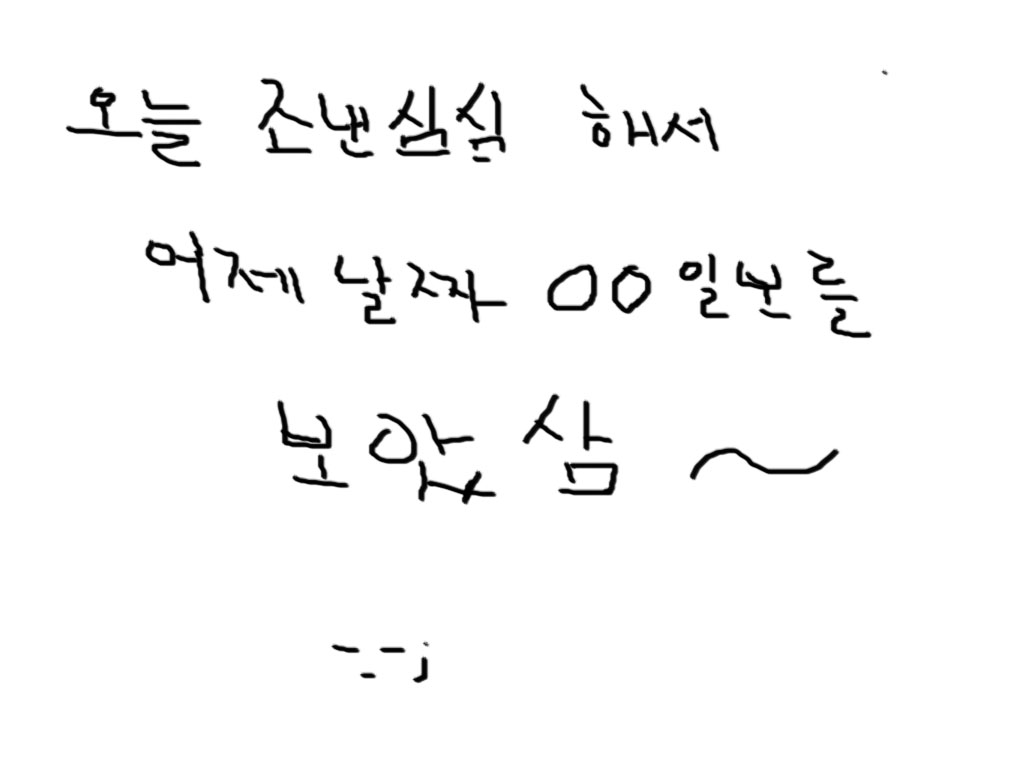 오늘 조낸심심 해서
어제 날짜 OO일보를
보았삼 ~
-_-;